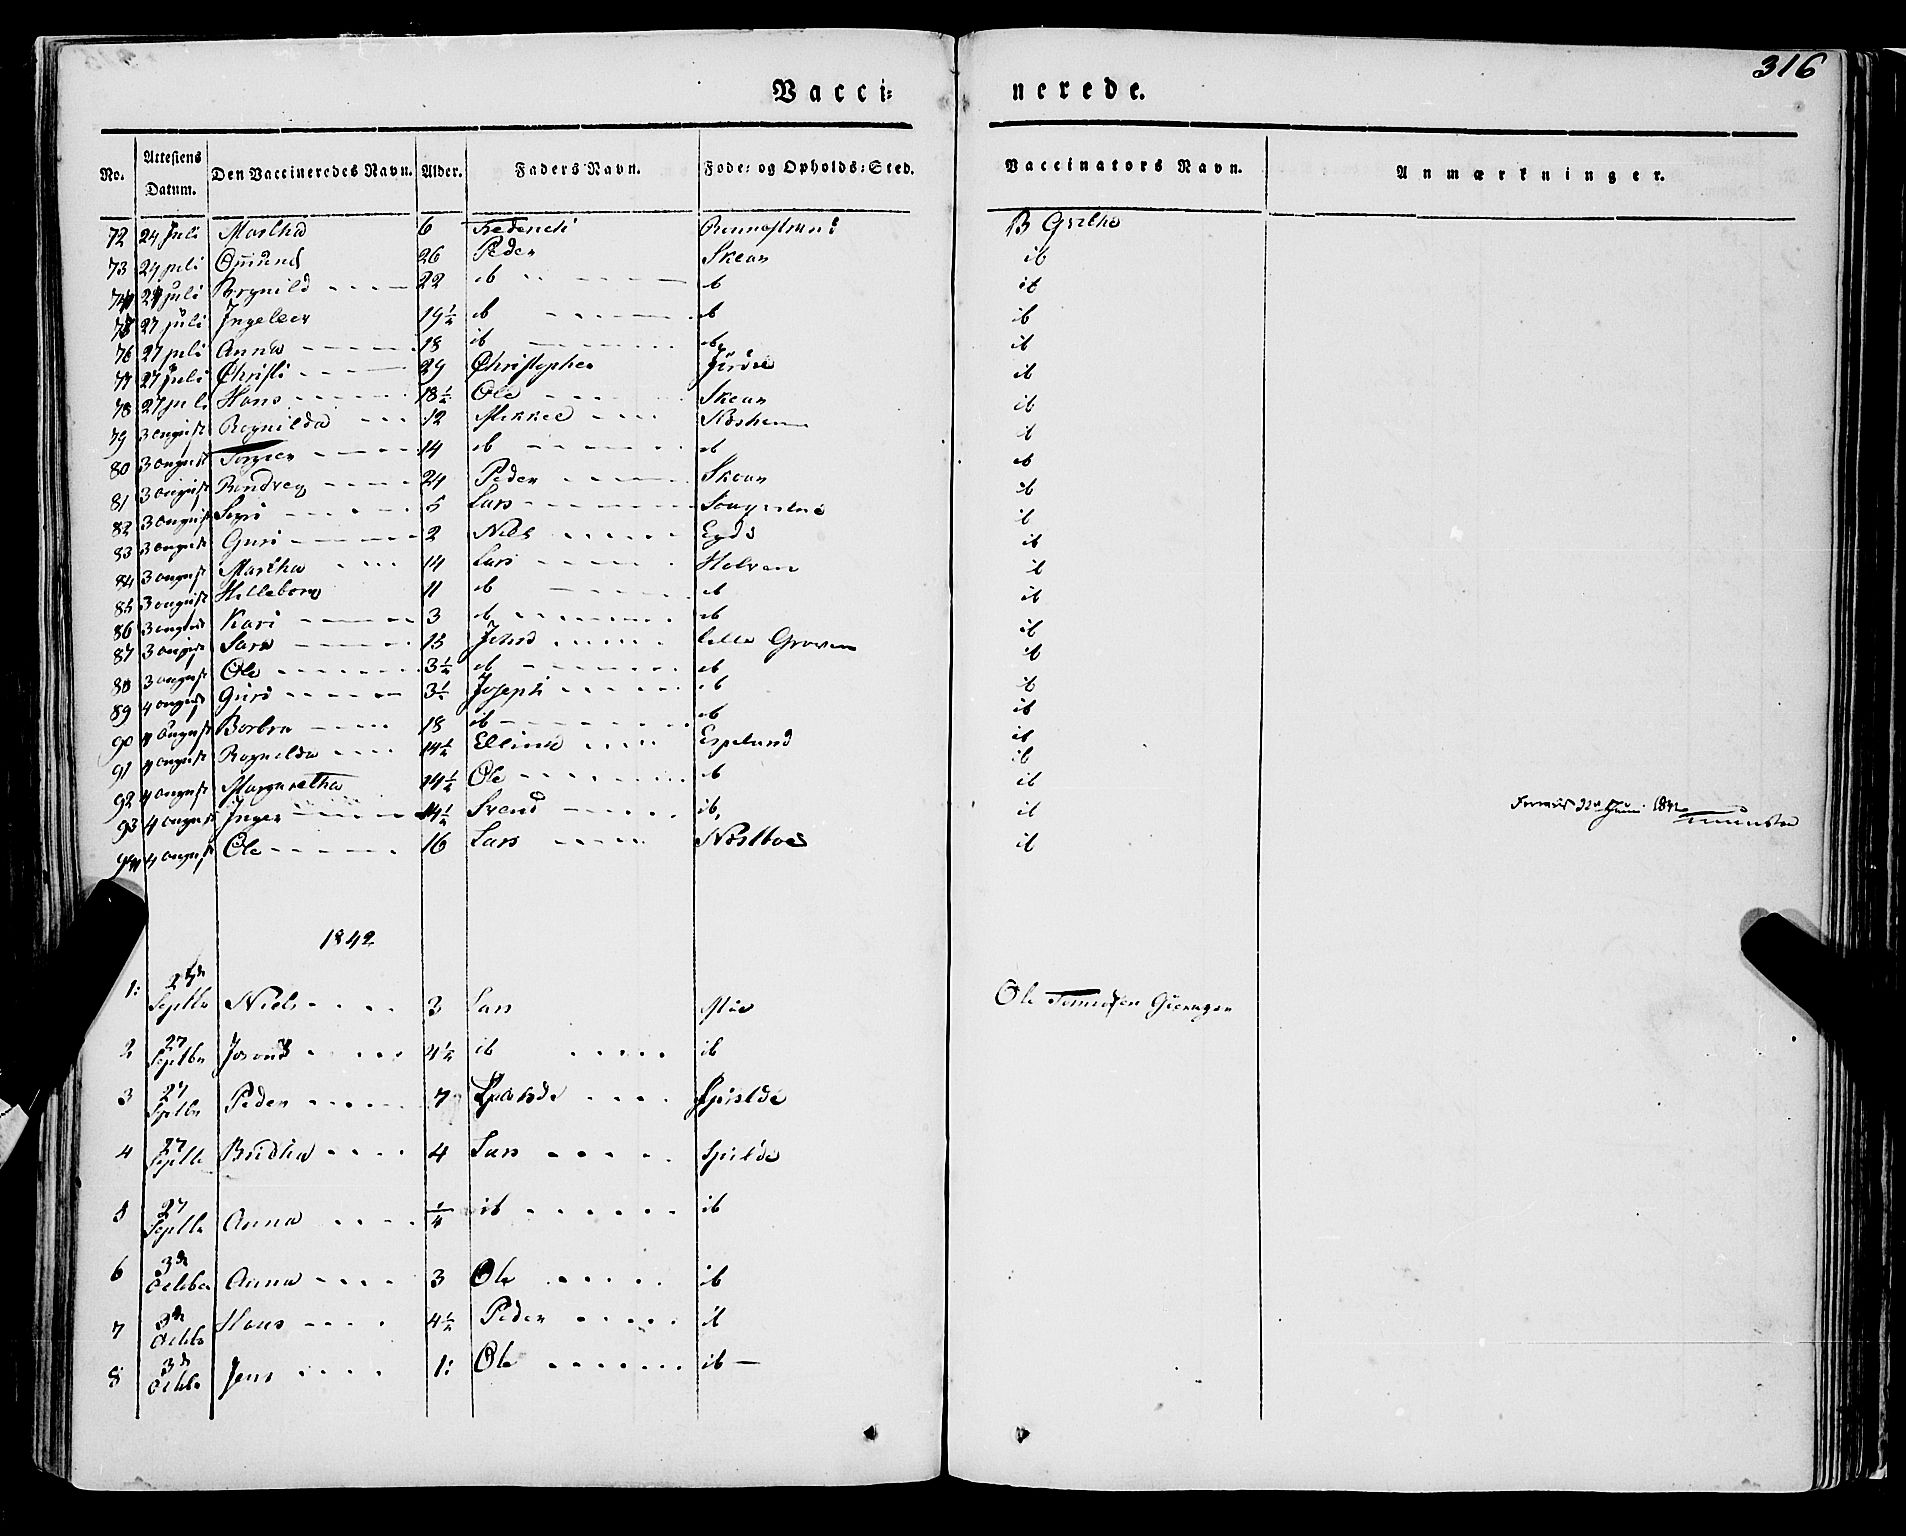 316
Vacci= nerede.
No. Attestens Datum. Den Vaccineredes Navn. Alder. Faders Navn. Føde= og Opholds=Sted. Vaccinators Navn. Anmærkninger.
72 24 Juli Martha 6 B Grethe
73 24 juli Omund 26 Peder Skaar ib
74 24 juli Brynild 22 ib ib ib
75 27 juli Ingeleer 19½ ib ib ib
76 27 juli Anna 18 ib ib ib
77 27 juli Christi 29 Christopher ib
78 27 juli Hans 18½ Ole Skaar ib
79 3 august Rognilda 12 Mikkel ib
80 3 august Torger 14 ib ib ib
81 3 august Randveg 24 Peder Skaar ib
82 3 august Sigri 5 Lars ib
83 3 august Guri 2 Niels Eyde ib
84 3 august Martha 14 Lars Holven ib
85 3 august Hilleborg 11 ib ib ib
86 3 august Kari 3 ib ib ib
87 3 august Sara 13 Johns Lille Graven ib
88 3 august Ole 3½ ib ib ib
89 4 august Guri 3½ Joseph ib ib
90 4 august Borbra 18 ib ib ib
91 4 august Rognilda 14½ Elling Espeland ib
92 4 august Margaretha 14½ Ole ib ib
93 4 august Inger 14½ Svend ib, ib
94 4 august Ole 16 Lars Nestboe ib
1842
1: 27de Septbr Niels 3 Lars Ole
2 27 Septbr 4½ ib ib
3 27 Septbr Peder 7 Spilde
4 27 Septbr Britha 4 Lars Spilde
5 27 Septbr Anna ¼ ib ib
6 3de Octbr Anna 3 Ole ib
7 3de Octbr Hans 4½ Peder ib
8 3de Octbr Jens 1: Ole ib